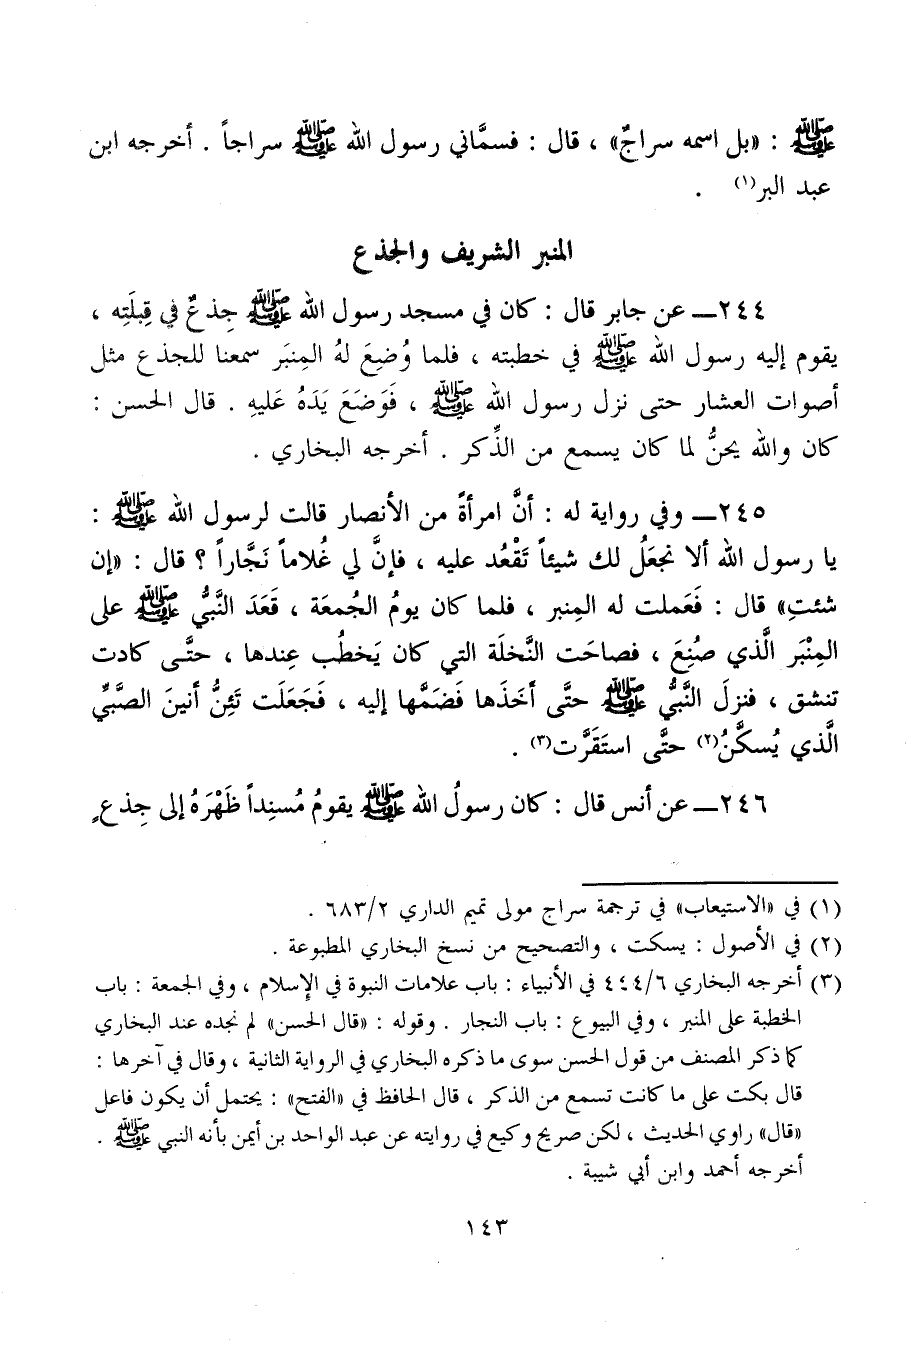 ﷺ : «بل اسمه سراجٌ» ، قال : فسمَّاني رسول الله ﷺ سراجاً . أخرجه ابن
عبد البر(١) .
المنبر الشريف والجذع
٢٤٤ــ عن جابر قال : كان في مسجد رسول الله ﷺ جِذعٌ في قِبلَتِه ،
يقوم إليه رسول الله ﷺ في خطبته ، فلما وُضِعَ لهُ المِنبَر سمعنا للجذع مثل
أصوات العشار حتى نزل رسول الله ﷺ ، فَوَضَعَ يَدَهُ عَليهِ . قال الحسن :
كان والله يحنُّ لما كان يسمع من الذِّكر . أخرجه البخاري .
٢٤٥ــ وفي رواية له : أنَّ امرأةً من الأنصار قالت لرسول الله ﷺ :
يا رسول الله ألا نجعَلُ لك شيئاً تَقْعُد عليه ، فإنَّ لي غُلاماً نَجَّاراً ؟ قال : «إن
شئتِ» قال : فَعَملت له المِنبر ، فلما كان يومُ الجُمعَة ، قَعَدَ النَّبيُّ ﷺ على
المِنْبَر الَّذي صُنِعَ ، فصاحَت النَّخلَة التي كان يَخطُب عِندها ، حتَّى كادت
تنشق ، فنزلَ النَّبيُّ ﷺ حتَّى أخَذَها فَضَمَّها إليه ، فَجَعَلَت تَئِنُّ أنينَ الصَّبيِّ
الَّذي يُسكَّنُ(٢) حتَّى استَقَرَّت(٣) .
٢٤٦ــ عن أنس قال : كان رسولُ الله ﷺ يقومُ مُسنِداً ظَهْرَهُ إلى جِذعٍ
(١) في «الاستيعاب» في ترجمة سراج مولى تميم الداري ٦٨٣/٢ .
(٢) في الأصول : يسكت ، والتصحيح من نسخ البخاري المطبوعة .
(٣) أخرجه البخاري ٤٤٤/٦ في الأنبياء : باب علامات النبوة في الإسلام ، وفي الجمعة : باب
الخطبة على المنبر ، وفي البيوع : باب النجار . وقوله : «قال الحسن» لم نجده عند البخاري
كما ذكر المصنف من قول الحسن سوى ما ذكره البخاري في الرواية الثانية ، وقال في آخرها :
قال بكت على ما كانت تسمع من الذكر ، قال الحافظ في «الفتح» : يحتمل أن يكون فاعل
«قال» راوي الحديث ، لكن صريح وكيع في روايته عن عبد الواحد بن أيمن بأنه النبي ﷺ .
أخرجه أحمد وابن أبي شيبة .
١٤٣